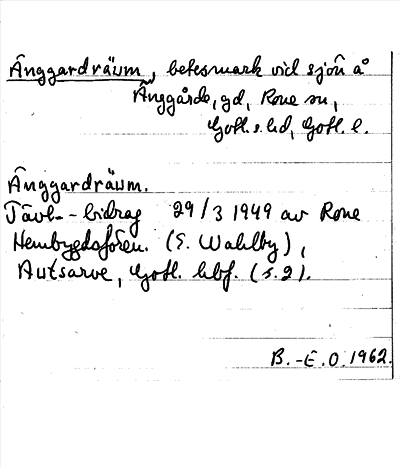 Änggardräum, betesmark vid sjön å
Änggårde, gd, Rone sn,
Gotl. s. hd, Gotl. l.
Änggardräum.
Tävl.-bidrag 29/3 1949 av Rone
Hembygdsfören. (E. Wahlby),
Autsarve, Gotl. hbf. (s. 2).
B.-E. O. 1962.